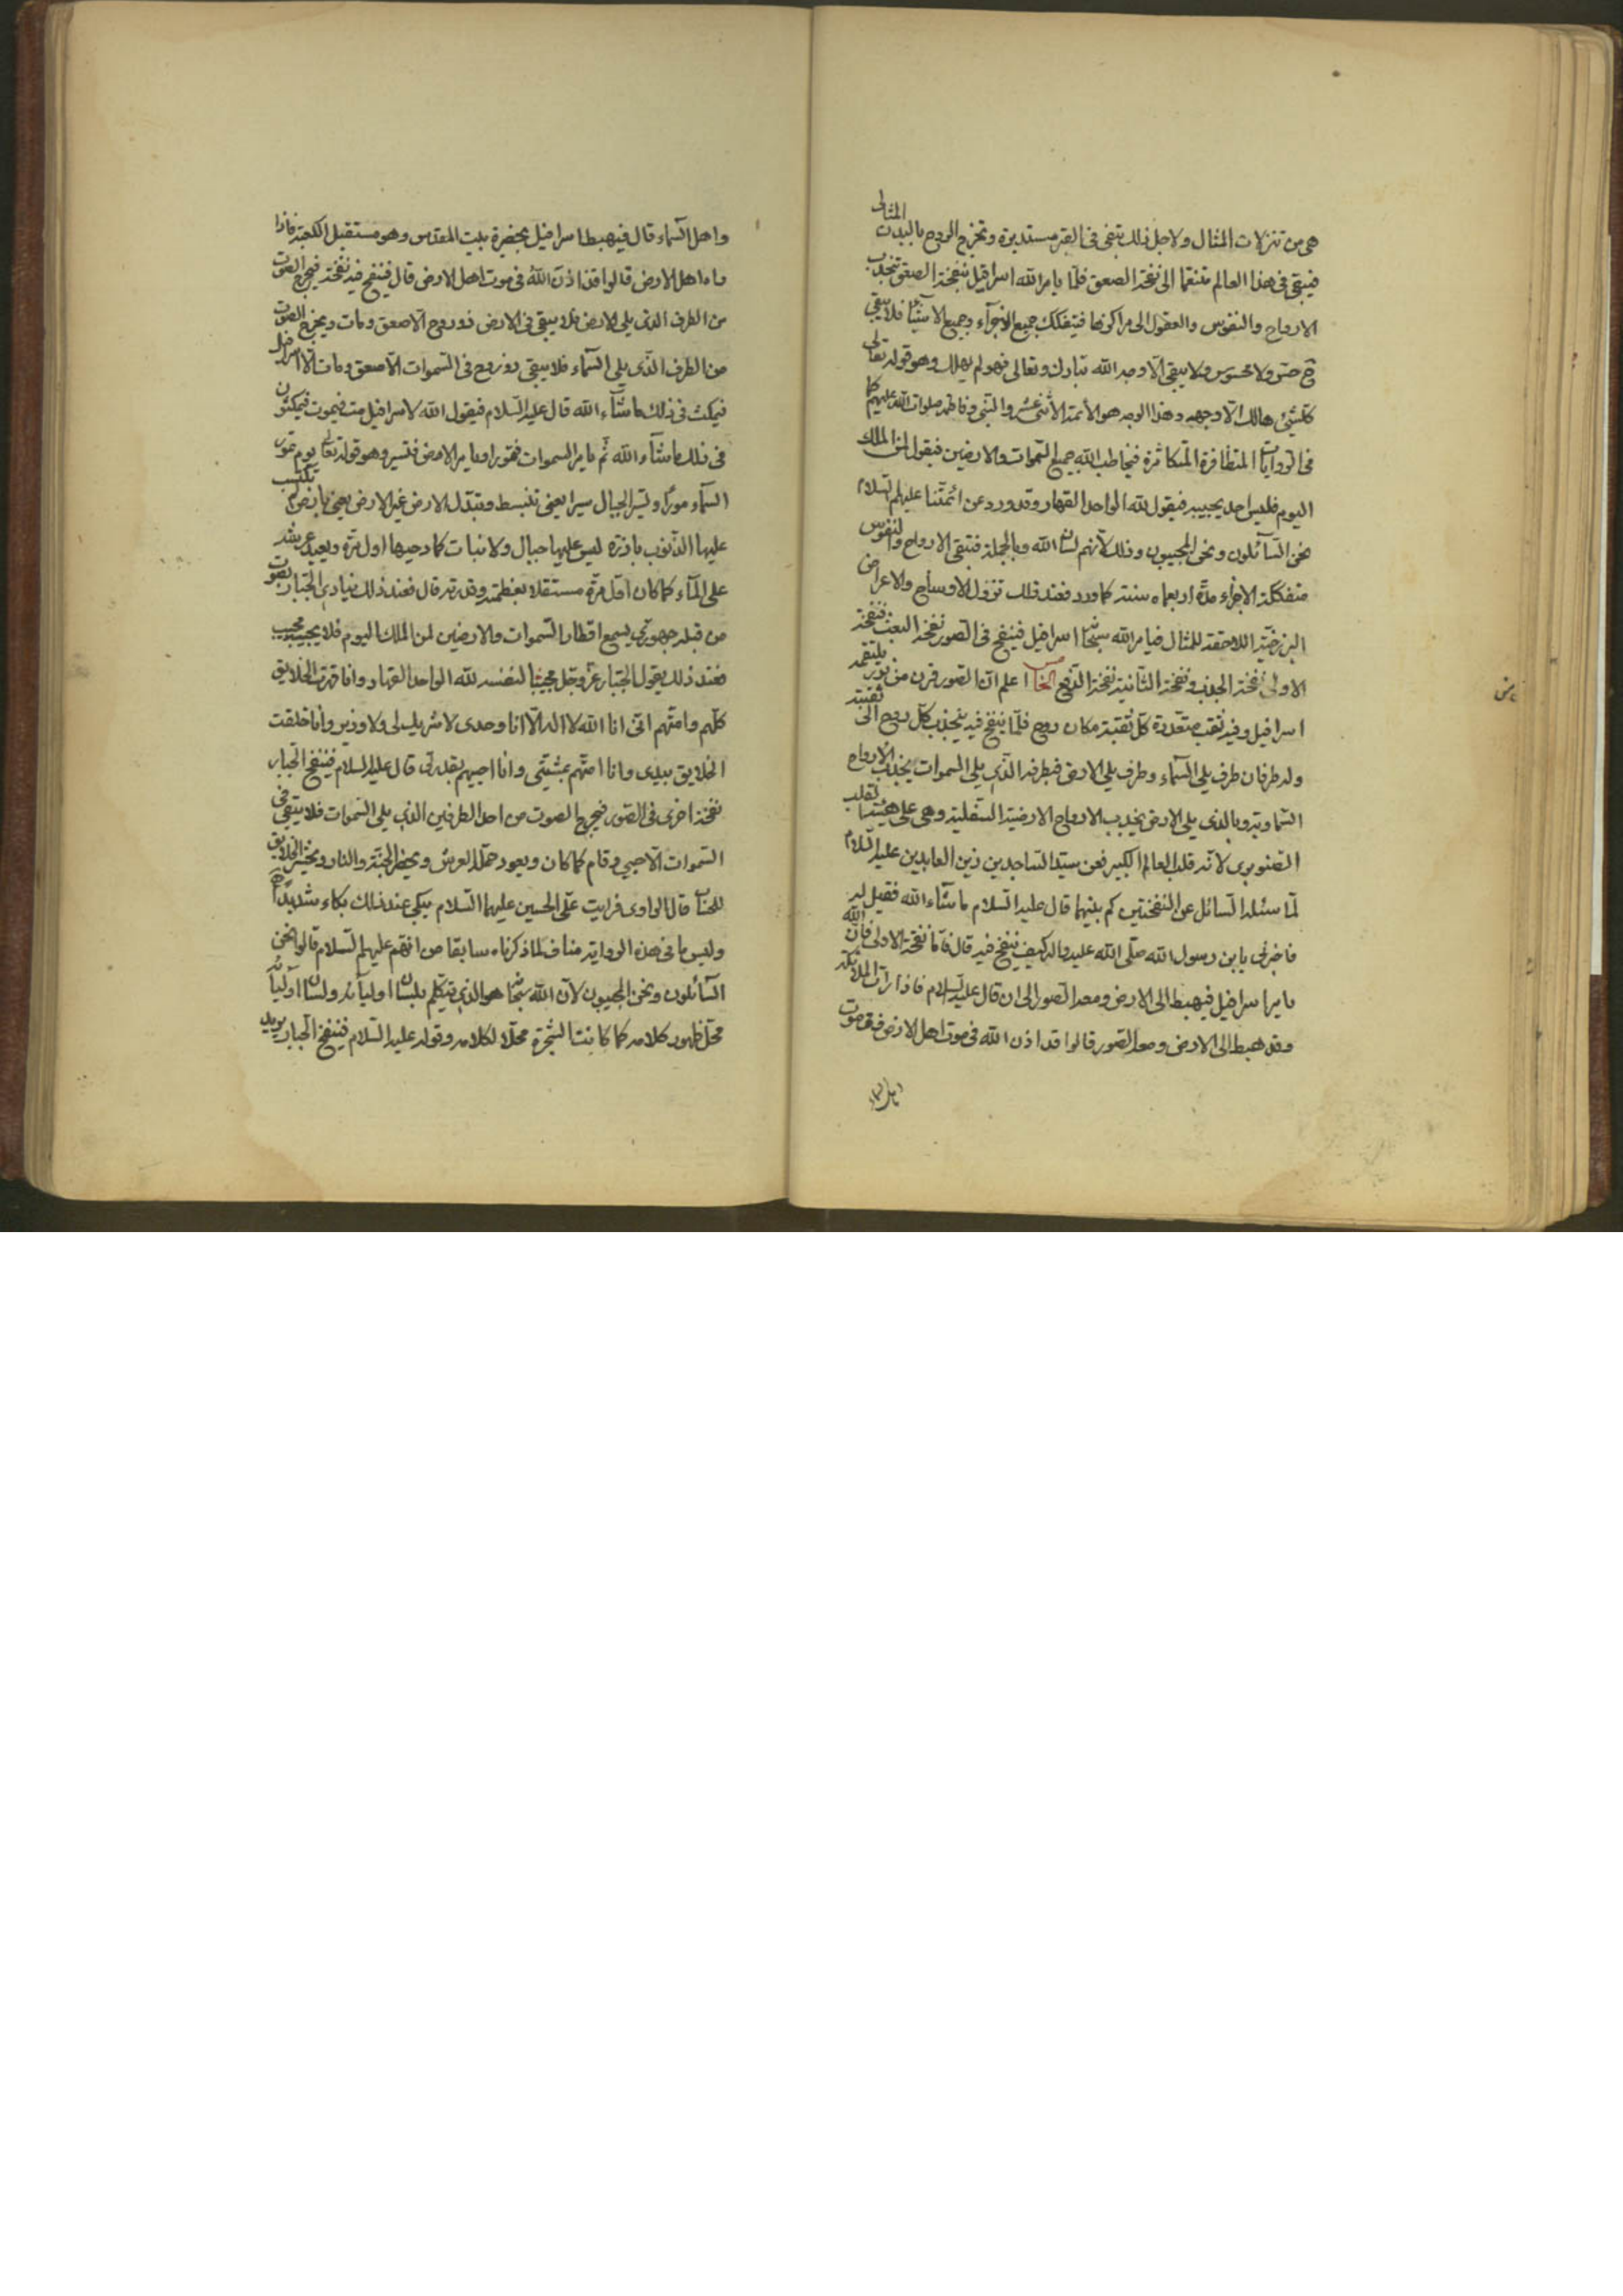 هى من تنزلات المثال ولاجل ذلك تبقى فى القبر مستديرة وتخرج الروح بالبدن المثالى
فيبقى فى هذا العالم متنعما الى نفخة الصعق فلما يامر الله اسرافيل بنفخة الصعق تنجذب
الارواح والنفوس والعقول الى مراكزها فيتفكك جميع الاجزآء وجميع الاشيآء فلا يبقى
ح حس ولا محسوس ولا يبقى الا وجه الله تبارك وتعالى فهو لم يهلك وهو قوله تعالى
كلشئ هالك الا وجهه وهذا الوجه هو الأئمة الأثنى عشر والنبى وفاطمة صلوات الله عليهم كما
فى الروايات المتظافرة المتكاثرة فيخاطب الله جميع السموات والارضين فيقول لمن الملك
اليوم فليس احد يجيبه فيقول لله الواحد القهار وقد ورد عن ائمتنا عليهم السلام
نحن السآئلون ونحن المجيبون وذلك لأنهم لسان الله وبالجملة فتبقى الارواح والنفوس
متفككة الاجزاء مدة اربعماه سنة كما ورد فعند ذلك تزول الاوساخ والاعراض
البرزخية اللاحقة للمثال فيامر الله سبحانه اسرافيل فينفخ فى الصور نفخة البعث فنفخة
الاولى نفخة الجذب ونفخة الثانية نفخة الدفع الخامس اعلم ان الصور قرن من نور يلتقمه
اسرافيل وفيه ثقب متعددة كل ثقبة مكان روح فلما ينفخ فيه ينجذب كل روح الى ثقبته
وله طرفان طرف يلى السمآء وطرف يلى الارض فبطرفه الذى يلى السموات يجذب الارواح
السماوية وبالذى يلى الارض يجذب الارواح الارضية السفلية وهى على هيئة القلب
الصنوبرى لانه قلب العالم الكبير فعن سيد الساجدين زين العابدين عليه السلام
لما سئله السائل عن النفختين كم بينهما قال عليه السلام ما شآء الله فقيل له
فاخبرنى يابن رسول الله صلى الله عليه واله كيف ينفخ فيه قال فاما نفخة الاولى فان الله
يامر اسرافيل فيهبط الى الارض ومعه الصور الى ان قال عليه السلام فاذا رات الملائكة
وقد هبط الى الارض ومعه الصور قالوا قد اذن الله فى موت اهل الارض وفى موت
واهل السماء قال فيهبط اسرافيل بحضيرة بيت المقدس وهو مستقبل الكعبة فاذا
راه اهل الارض قالوا قد اذن الله فى موت اهل الارض قال فينفخ فيه نفخة فيخرج الصوت
من الطرف الذى يلى الارض فلا يبقى فى الارض ذو روح الا صعق ومات ويخرج الصوت
من الطرف الذى يلى السمآء فلا يبقى ذو روح فى السموات الا صعق ومات الا اسرافيل
فيمكث فى ذلك ما شآء الله قال عليه السلام فيقول الله لاسرافيل مت فيموت فيمكثون
فى ذلك ما شآء الله ثم يامر السموات فتمور ويامر الارض فتسير وهو قوله تعالى يوم تمور
السمآء مورا وتسير الجبال سيرا يعنى تنبسط وتبدل الارض غير الارض يعنى بارض لم تكتسب
عليها الذنوب بارزه ليس عليها جبال ولا نبات كما دحيها اول مرة ويعيد عرشه
على المآء كما كان اول مرة مستقلا بعظمته وقدرته قال فعند ذلك ينادى الجبار بصوت
من قبله جهورى يسمع اقطار السموات والارضين لمن الملك اليوم فلا يجيبه مجيب
فعند ذلك يقول الجبار عز وجل مجيبا لنفسه لله الواحد القهار وانا قهرت الخلايق
كلهم وامتهم انى انا الله لا اله الا انا وحدى لا شريك لى ولا وزير وانا خلقت
الخلايق بيدى وانا امتهم بمشيتى وانا احييهم بقدرتى قال عليه السلام فينفخ الجبار
نفخة اخرى فى الصور فيخرج الصوت من احد الطرفين الذى يلى السموات فلا يبقى فى
السموات الا حيى وقام كما كان ويعود حملة العرش ويحضر الجنة والنار ويحشر الخلايق
للحساب قال الراوى فرايت على الحسين عليهما السلام يبكى عند ذلك بكاء شديدا
وليس ما فى هذه الرواية مناف لما ذكرناه سابقا من انهم عليهم السلام قالوا نحن
السآئلون ونحن المجيبون لأن الله سبحانه هو الذى يتكلم بلسان اوليآئه ولسان اوليآئه
محل ظهور كلامه كما كانت الشجرة محلا لكلامه وقوله عليه السلام فينفخ الجبار يريد